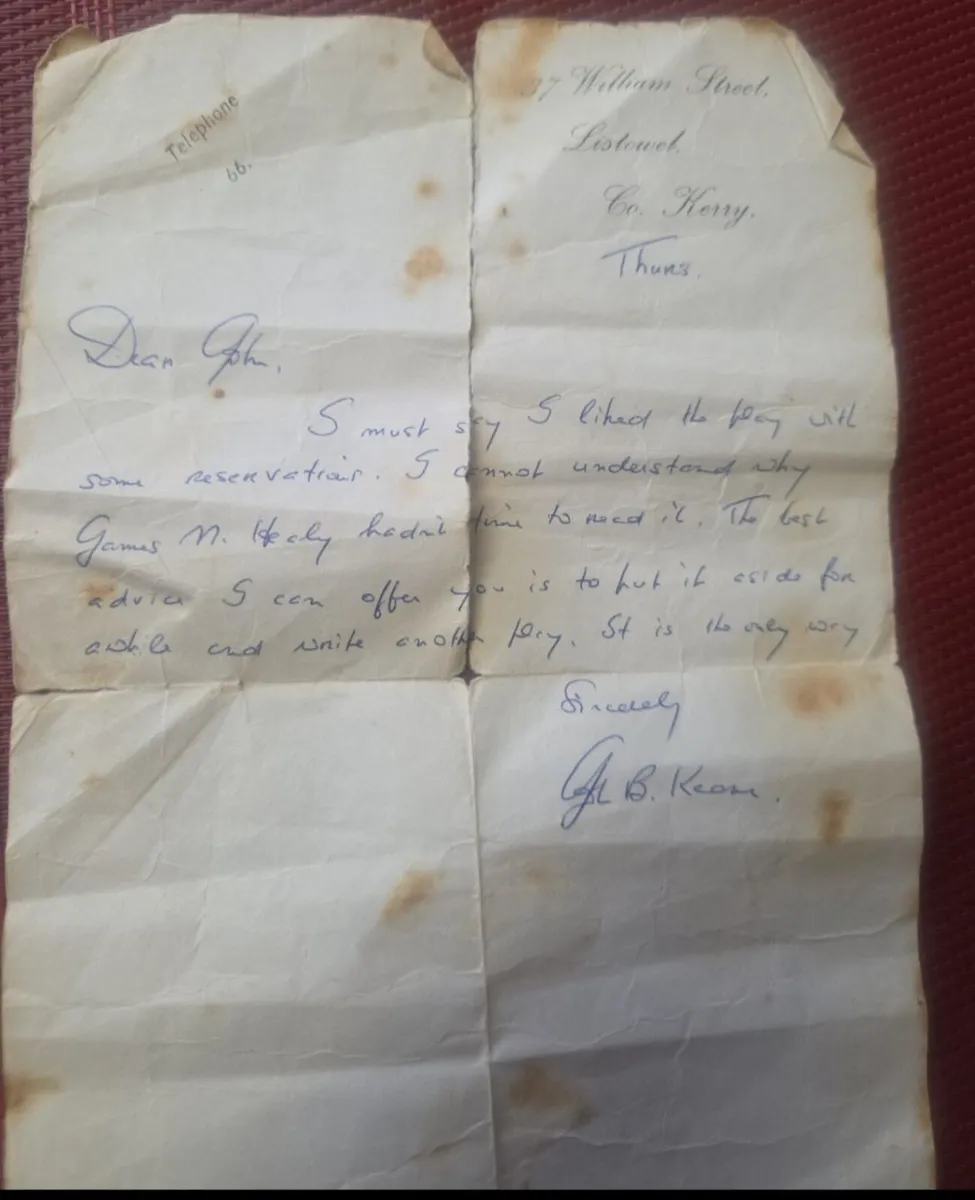 Telephone
66.
37 William Street,
Listowel,
Co. Kerry.
Thurs.
Dear John,
I must say I liked the play with
some reservations. I cannot understand why
James N. Healy hadn't time to read it. The best
advice I can offer you is to put it aside for
awhile and write another play. It is the only way
Sincerely
John B. Keane.